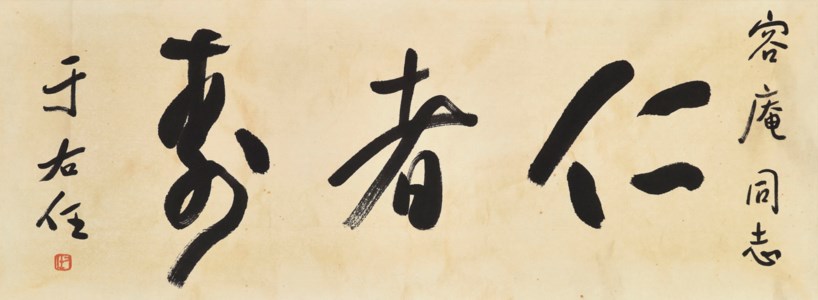 容庵同志
仁者壽
于右任